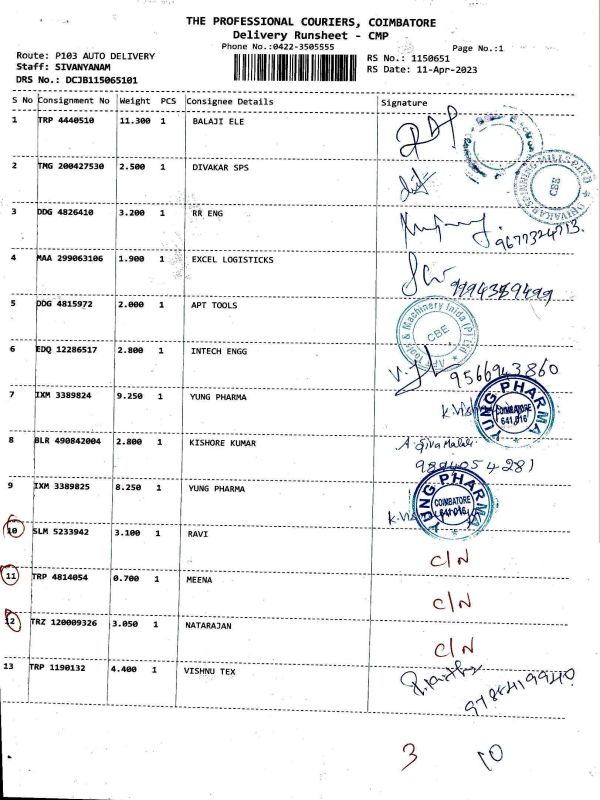 THE PROFESSIONAL COURIERS, COIMBATORE
Delivery Runsheet - CMP
Phone No.:0422-3505555
Page No.:1
Route: P103 AUTO DELIVERY
RS No.: 1150651
Staff: SIVANYANAM
RS Date: 11-Apr-2023
DRS No.: DCJB115065101
S No Consignment No Weight PCS Consignee Details Signature
1 TRP 4440510 11.300 1 BALAJI ELE
2 TMG 200427530 2.500 1 DIVAKAR SPS
CBE
3 DDG 4826410 3.200 1 RR ENG
9677324713.
4 MAA 299063106 1.900 1 EXCEL LOGISTICKS
9994359499
5 DDG 4815972 2.000 1 APT TOOLS
Tools & Machinery India (P) Ltd
CBE
6 EDQ 12286517 2.800 1 INTECH ENGG
9566943860
7 IXM 3389824 9.250 1 YUNG PHARMA
YUNG PHARMA
COIMBATORE
641 016
8 BLR 490842004 2.800 1 KISHORE KUMAR
9894054281
9 IXM 3389825 8.250 1 YUNG PHARMA
YUNG PHARMA
COIMBATORE
641 016
10 SLM 5233942 3.100 1 RAVI
C/N
11 TRP 4814054 0.700 1 MEENA
C/N
12 TRZ 120009326 3.050 1 NATARAJAN
C/N
13 TRP 1190132 4.400 1 VISHNU TEX
9788419940
3 10